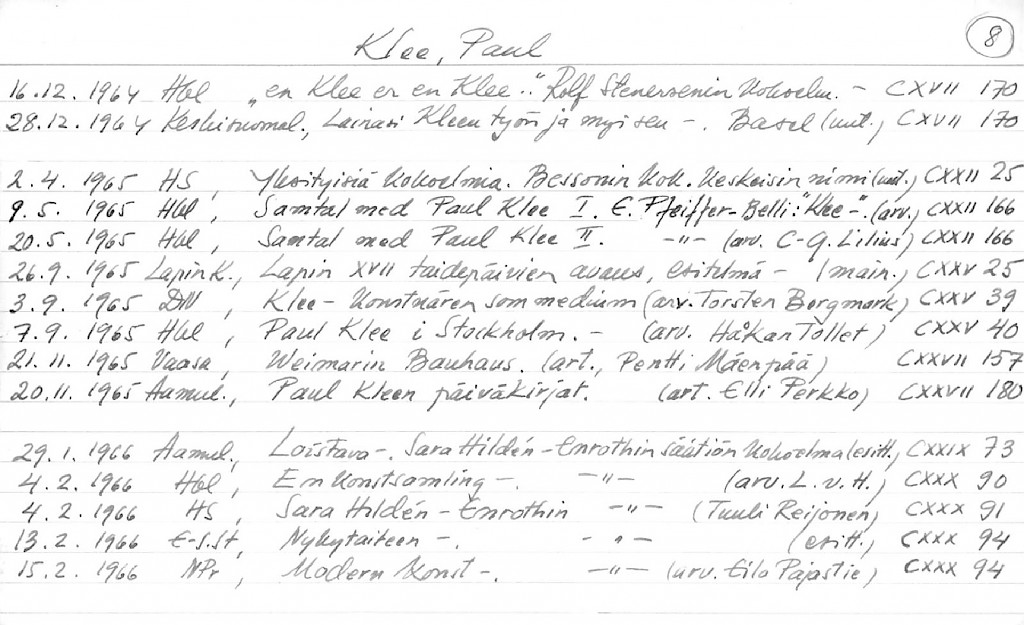 8
Klee, Paul
16.12.1964 Hbl „en Klee er en Klee." Rolf Stenersenin kokoelm. - CXVII 170
28.12.1964 Keskisuomal., Lainasi Kleen työn ja myi sen -. Basel (uut.) CXVII 170
2.4. 1965 HS, Yksityisiä kokoelmia. Bessonin kok. keskeisin nimi (uut.) CXXII 25
9.5. 1965 Hbl, Samtal med Paul Klee I. E. Pfeiffer-Belli: "Klee-". (arv.) CXXII 166
20.5. 1965 Hbl, Samtal med Paul Klee II. -"- (arv. C-G. Lilius) CXXII 166
26.9. 1965 Lapin K., Lapin XVII taidepäivien avaus, esitelmä - (main.) CXXV 25
3.9. 1965 DN, Klee - Konstnären som medium (arv. Torsten Bergmark) CXXV 39
7.9. 1965 Hbl, Paul Klee i Stockholm. - (arv. Håkan Tollet) CXXV 40
21.11. 1965 Vaasa, Weimarin Bauhaus. (art., Pentti Mäenpää) CXXVII 157
20.11. 1965 Aamul., Paul Kleen päiväkirjat. (art. Elli Perkko) CXXVII 180
29.1. 1966 Aamul., Loistava -. Sara Hildén-Enrothin säätiön kokoelma (esitt.) CXXIX 73
4.2. 1966 Hbl, En konstsamling -. -"- (arv. L. v. H.) CXXX 90
4.2. 1966 HS, Sara Hildén - Enrothin -"- (Tuuli Reijonen) CXXX 91
13.2. 1966 E-S.St, Nykytaiteen -. -"- (esitt.) CXXX 94
15.2. 1966 NPr, Modern konst -. -"- (arv. Eila Pajastie) CXXX 94